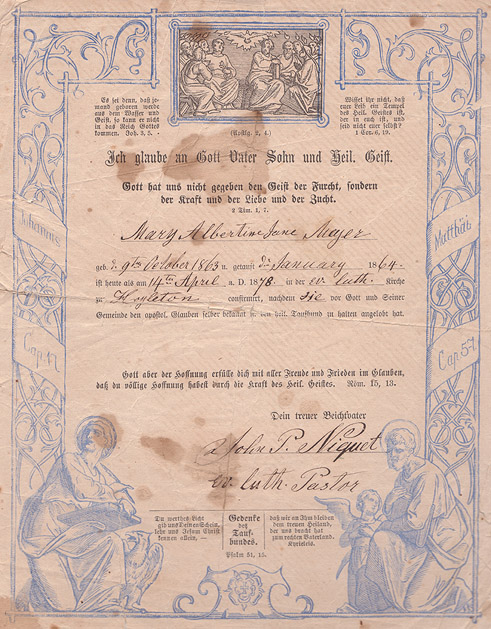 Es sei denn, daß je-
mand geboren werde
aus dem Wasser und
Geist, so kann er nicht
in das Reich Gottes
kommen. Joh. 3, 5.
Wisset ihr nicht, daß
euer Leib ein Tempel
des Heil. Geistes ist,
der in euch ist, und
seid nicht euer selbst?
1 Cor. 6, 19.
(Apstlg. 2, 4.)
Ich glaube an Gott Vater Sohn und Heil. Geist.
Gott hat uns nicht gegeben den Geist der Furcht, sondern
der Kraft und der Liebe und der Zucht.
2 Tim. 1, 7.
Mary Albertine Jane Meyer
geb. d. 9ten October 1863 u. getauft d. January 1864.
ist heute als am 14ten April a. D. 1878. in der ev. luth. Kirche
zu Hoyleton confirmirt, nachdem sie vor Gott und Seiner
Gemeinde den apostol. Glauben selber bekannt u. den heil. Taufbund zu halten angelobt hat.
Johannis
Cap. 17
Matthäi
Cap. 5 7
Gott aber der Hoffnung erfülle dich mit aller Freude und Frieden im Glauben,
daß du völlige Hoffnung habest durch die Kraft des Heil. Geistes. Röm. 15, 13.
Dein treuer Beichtvater
John P. Niquet
ev. luth. Pastor
Du werthes Licht
gib uns Deinen Schein,
lehr uns Jesum Christ
kennen allein, —
Gedenke
des
Tauf-
bundes.
Psalm 51, 13.
daß wir an Ihm bleiben
dem treuen Heiland,
der uns bracht hat
zum rechten Vaterland.
Kyrieleis.